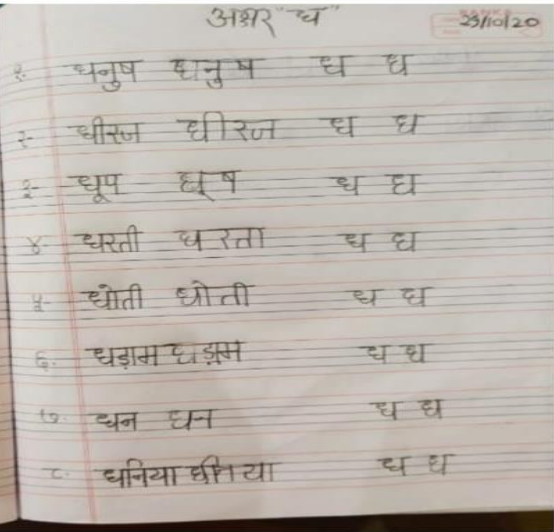 अक्षर "ध" 23/10/20
१. धनुष धनुष ध ध
२- धीरज धीरज ध ध
३- धूप धूष ध ध
४- धरती धरता ध ध
५- धोती धोती ध ध
६. धड़ाम धड़ाम ध ध
७. धन धन ध ध
८. धनिया धनिया ध ध